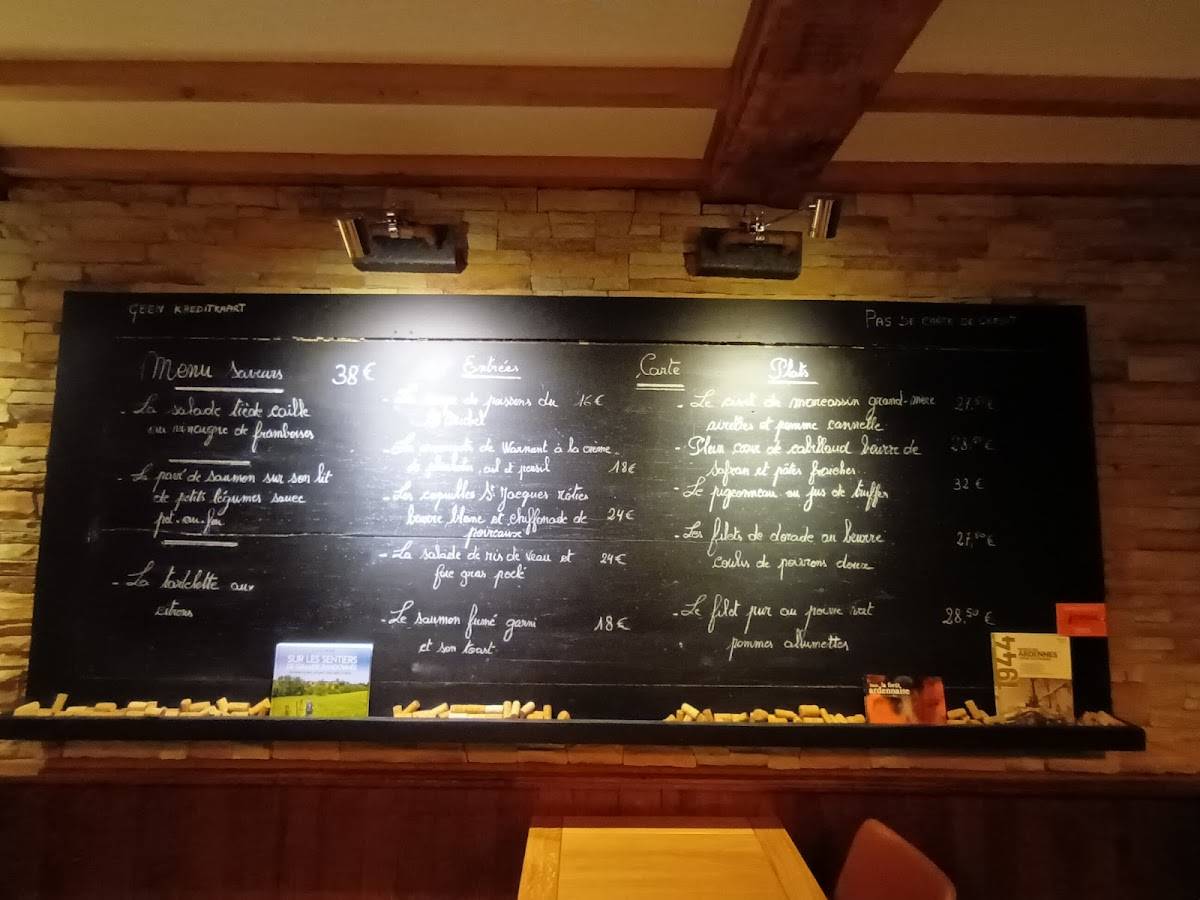 GEEN KREDITKAART
PAS DE CARTE DE CREDIT
Menu Saveurs 38 €
- La salade tiède caille
au vinaigre de framboises
- Le pavé de saumon sur son lit
de petits légumes sauce
pot-au-feu
- La tartelette aux
citrons
Entrées
de poissons du 16 €
de Warnant à la crème
ail et persil 18 €
- Les coquilles St Jacques rôties
beurre blanc et chiffonade de 24 €
poireaux
- La salade de ris de veau et 24 €
foie gras poêlé
- Le saumon fumé garni 18 €
et son toast
Carte
Plats
- Le civet de marcassin grand-mère 27,50 €
airelles et pomme cannelle
- Plein cœur de cabillaud beurre de 28,50 €
safran et pâtes fraîches
- Le pigeonneau au jus de truffes 32 €
- Les filets de dorade au beurre 27,50 €
coulis de poivrons doux
- Le filet pur au poivre vert 28,50 €
pommes allumettes
SUR LES SENTIERS
la forêt
ardennaise
1944
ARDENNES